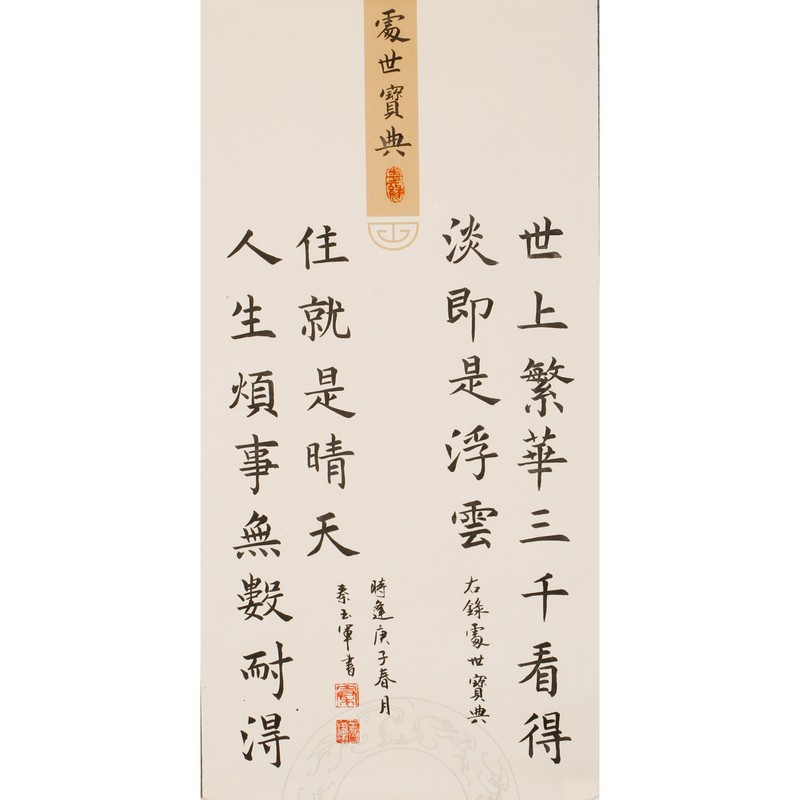 處世寶典
世上繁華三千看得
淡即是浮雲
右錄處世寶典
人生煩事無數耐淂
住就是晴天
時逢庚子春月
秦玉軍書